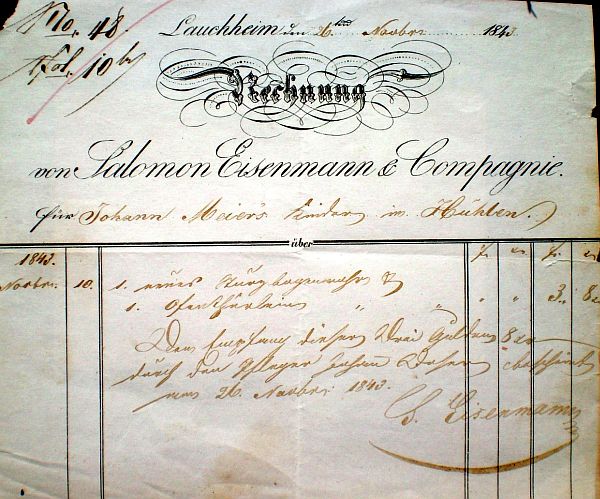 No. 48
Fol. 10
Lauchheim den 26ten Novbr 1843
Rechnung
von Salomon Eisenmann & Compagnie.
für Johann Meier's Kinder in Hühlen.
über
1843.
Novbr. 10. 1. neues
1. Ofenthürlein " " " " 3. 8
Den Empfang dieser Drei Gulden 8 xr
durch den Pfleger bescheint
am 26. Novbr 1843.
S. Eisenmann